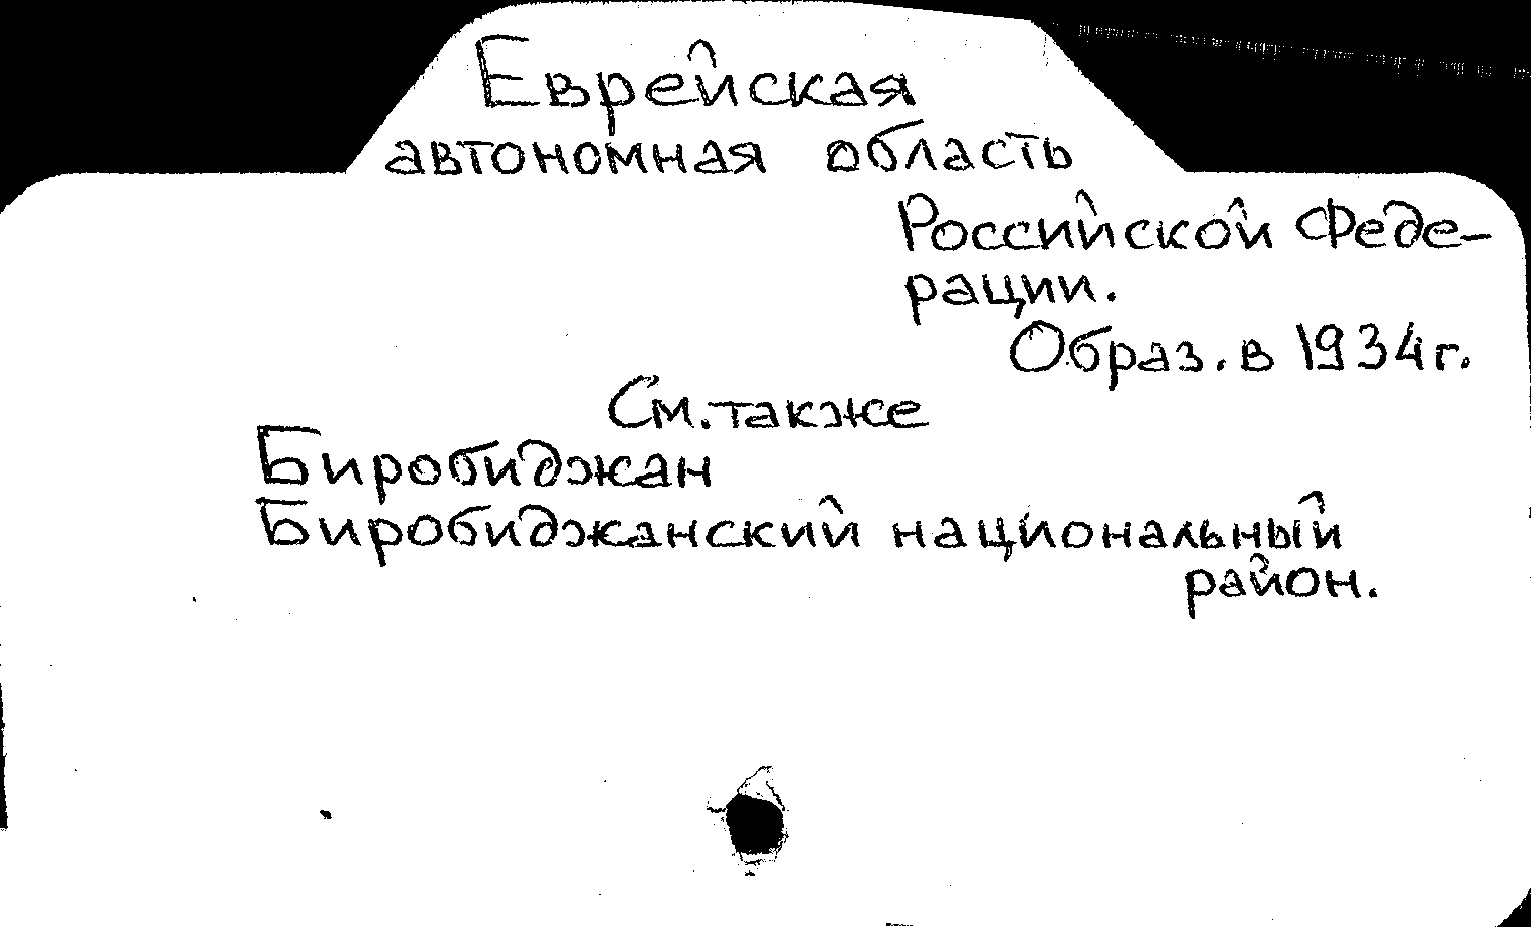 Еврейская
автономная область
Российской Феде-
рации.
Образ. в 1934 г.
См. также
Биробиджан
Биробиджанский национальный
район.